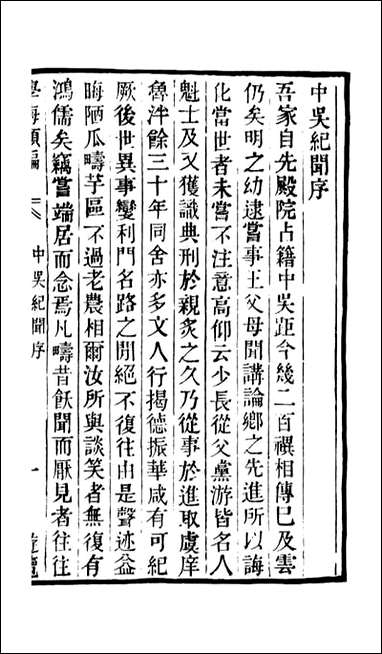 中吳紀聞序
吾家自先殿院占籍中吳距今幾二百禩相傳已及雲
仍矣明之幼逮嘗事王父母聞講論鄉之先進所以誨
化當世者未嘗不注意高仰云少長從父黨游皆名人
魁士及又獲識典刑於親炙之久乃從事於進取虞庠
魯泮餘三十年同舍亦多文人行揭德振華咸有可紀
厥後世異事變利門名路之閒絕不復往由是聲迹益
晦陋瓜疇芋區不過老農相爾汝所與談笑者無復有
鴻儒矣竊嘗端居而念焉凡疇昔飫聞而厭見者往往
學海類編 中吳紀聞序 一 遊覽